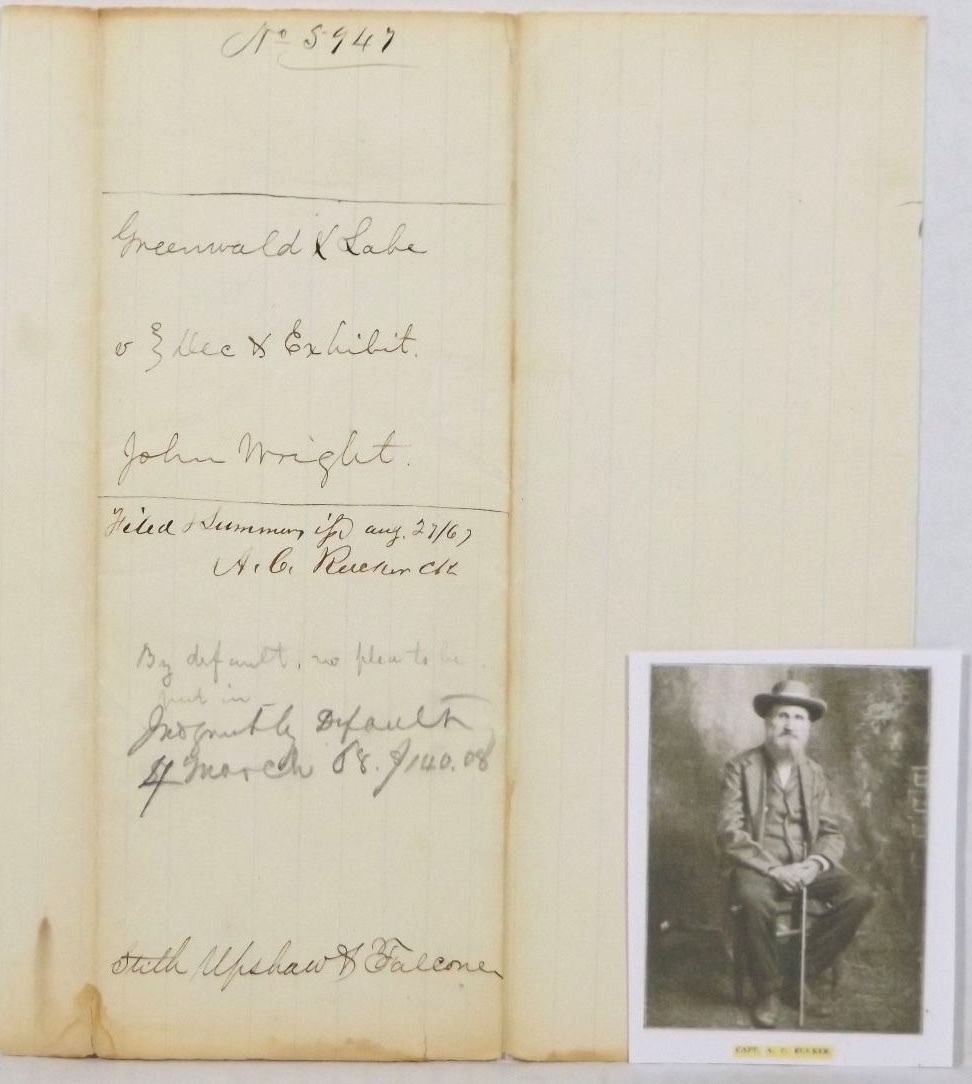 No 5947
Greenwald & Labe
v } Dec & Exhibit.
John Wright.
Filed & Summons issd aug. 27/67
A. C. Rucker clk
By default, no plea to be
put in
Judgmt by Default
4 March 68. $140.08
Stith Upshaw & Falconer
CAPT. A. C. RUCKER